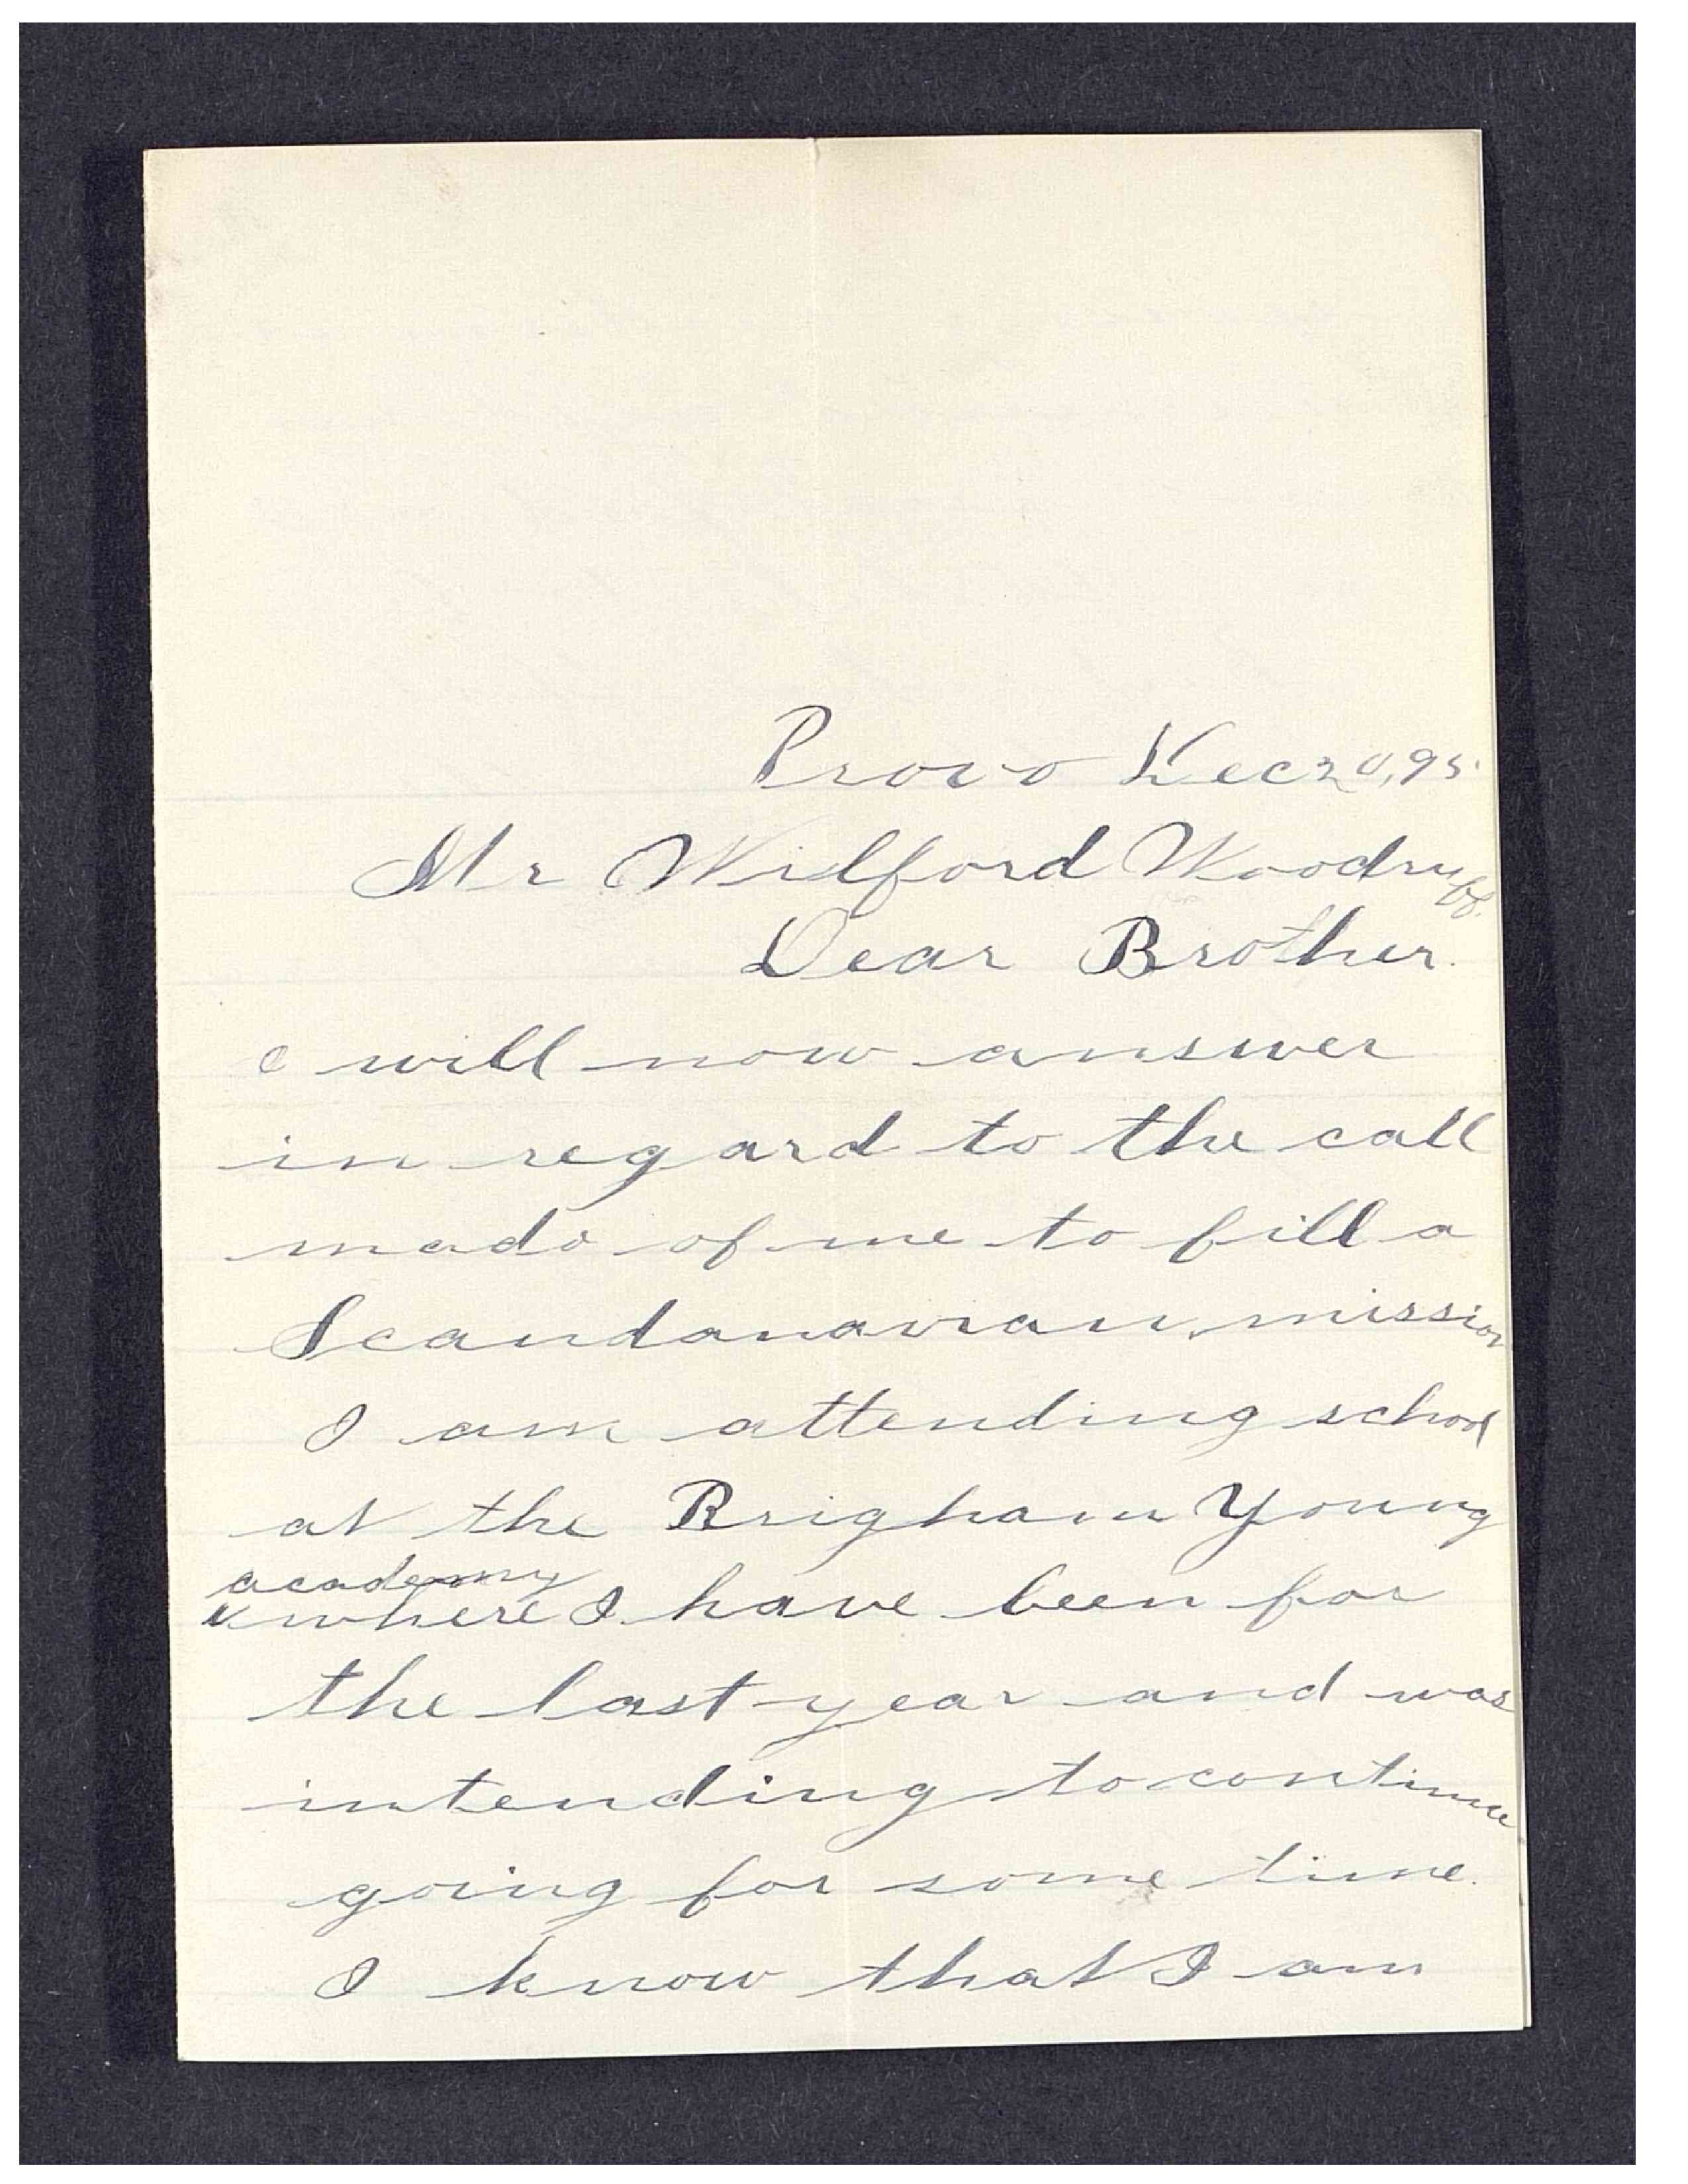 Provo Dec 20, 95.
Mr Wilford Woodruff.
Dear Brother.
I will now answer
in regard to the call
made of me to fill a
Scandanavian mission
I am attending school
at the Brigham Young
academy
where I have been for
the last year and was
intending to continue
going for some time.
I know that I am